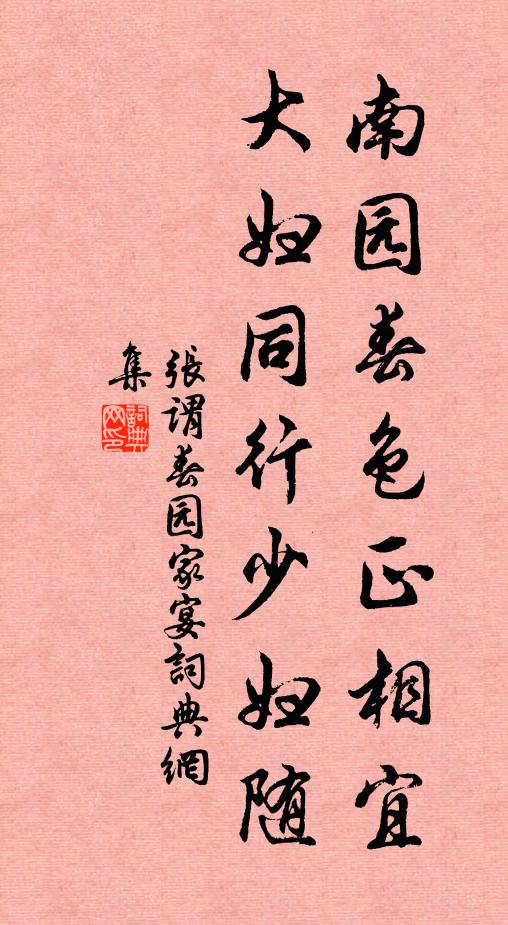 南园春色正相宜
大妇同行少妇随
張谓春园家宴詞典網
集
詞典网印